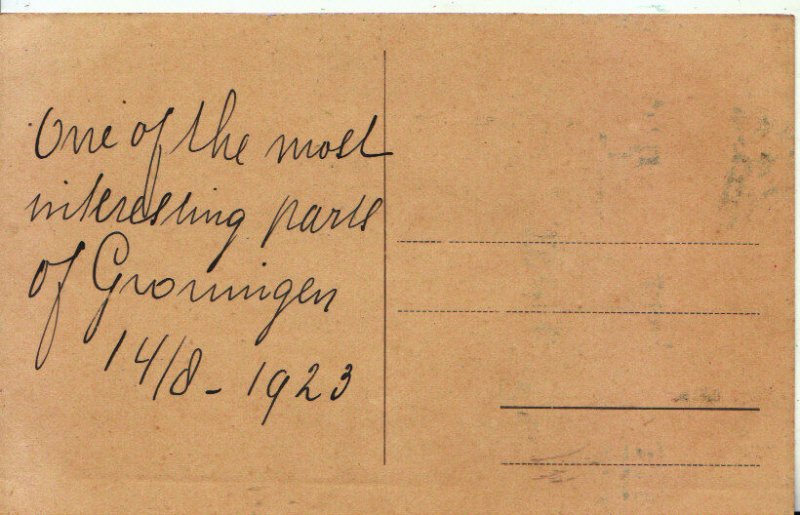 One of the most
interesting parts
of Groningen
14/8 - 1923